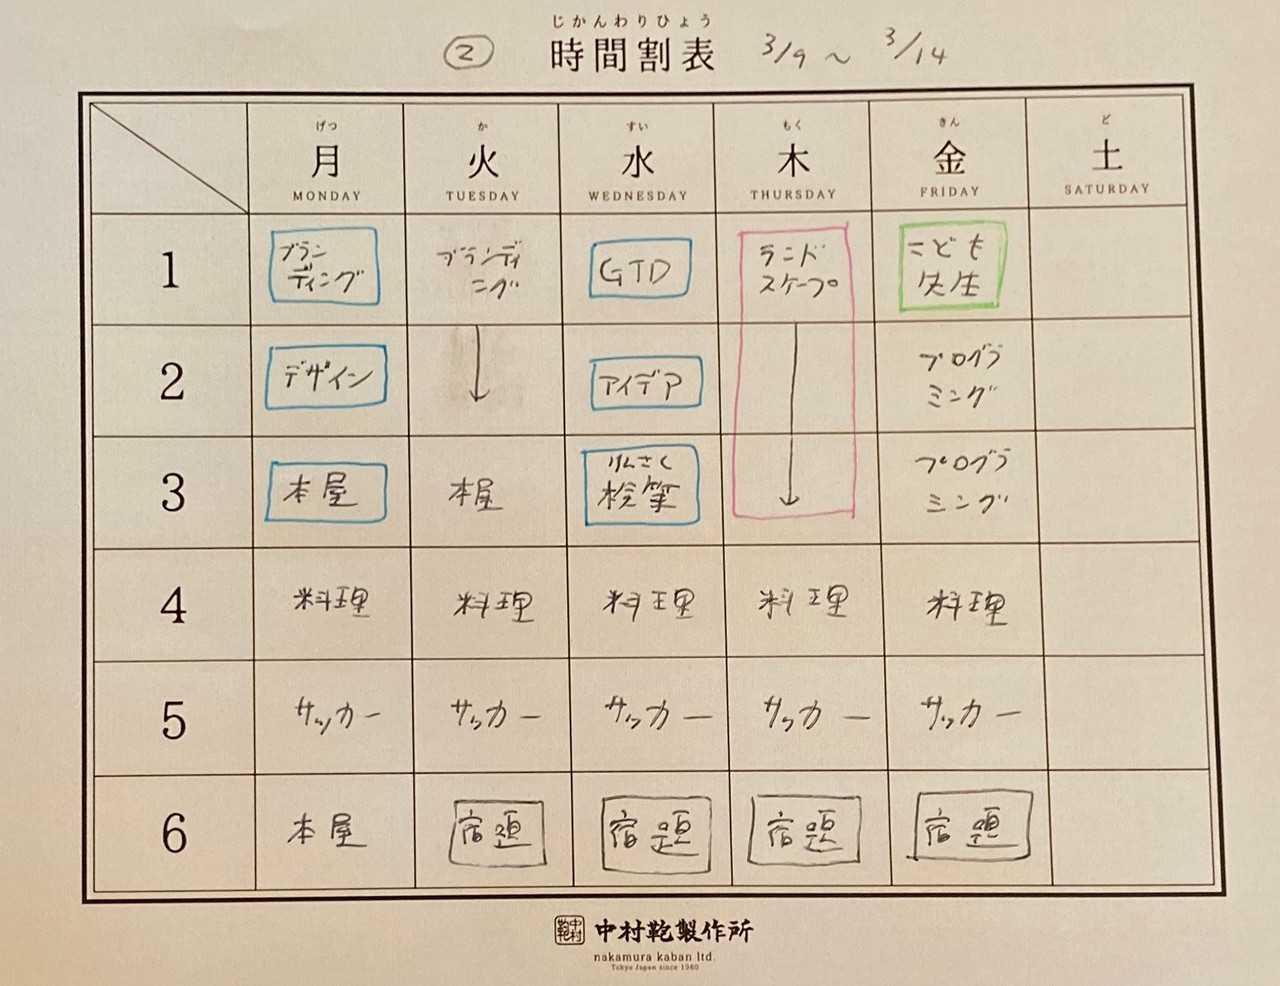 じかんわりひょう
② 時間割表 3/9 ~ 3/14
げつ か すい もく きん ど
月 火 水 木 金 土
MONDAY TUESDAY WEDNESDAY THURSDAY FRIDAY SATURDAY
1
ブラン
ディング
ブランディ
ング
GTD
ランド
スケープ
こども
先生
2
デザイン
アイデア
プログラ
ミング
3
本屋
本屋
けんさく
検索
プログラ
ミング
4 料理 料理 料理 料理 料理
5 サッカー サッカー サッカー サッカー サッカー
6 本屋 宿題 宿題 宿題 宿題
中村鞄 中村鞄製作所
nakamura kaban ltd.
Tokyo Japan since 1960